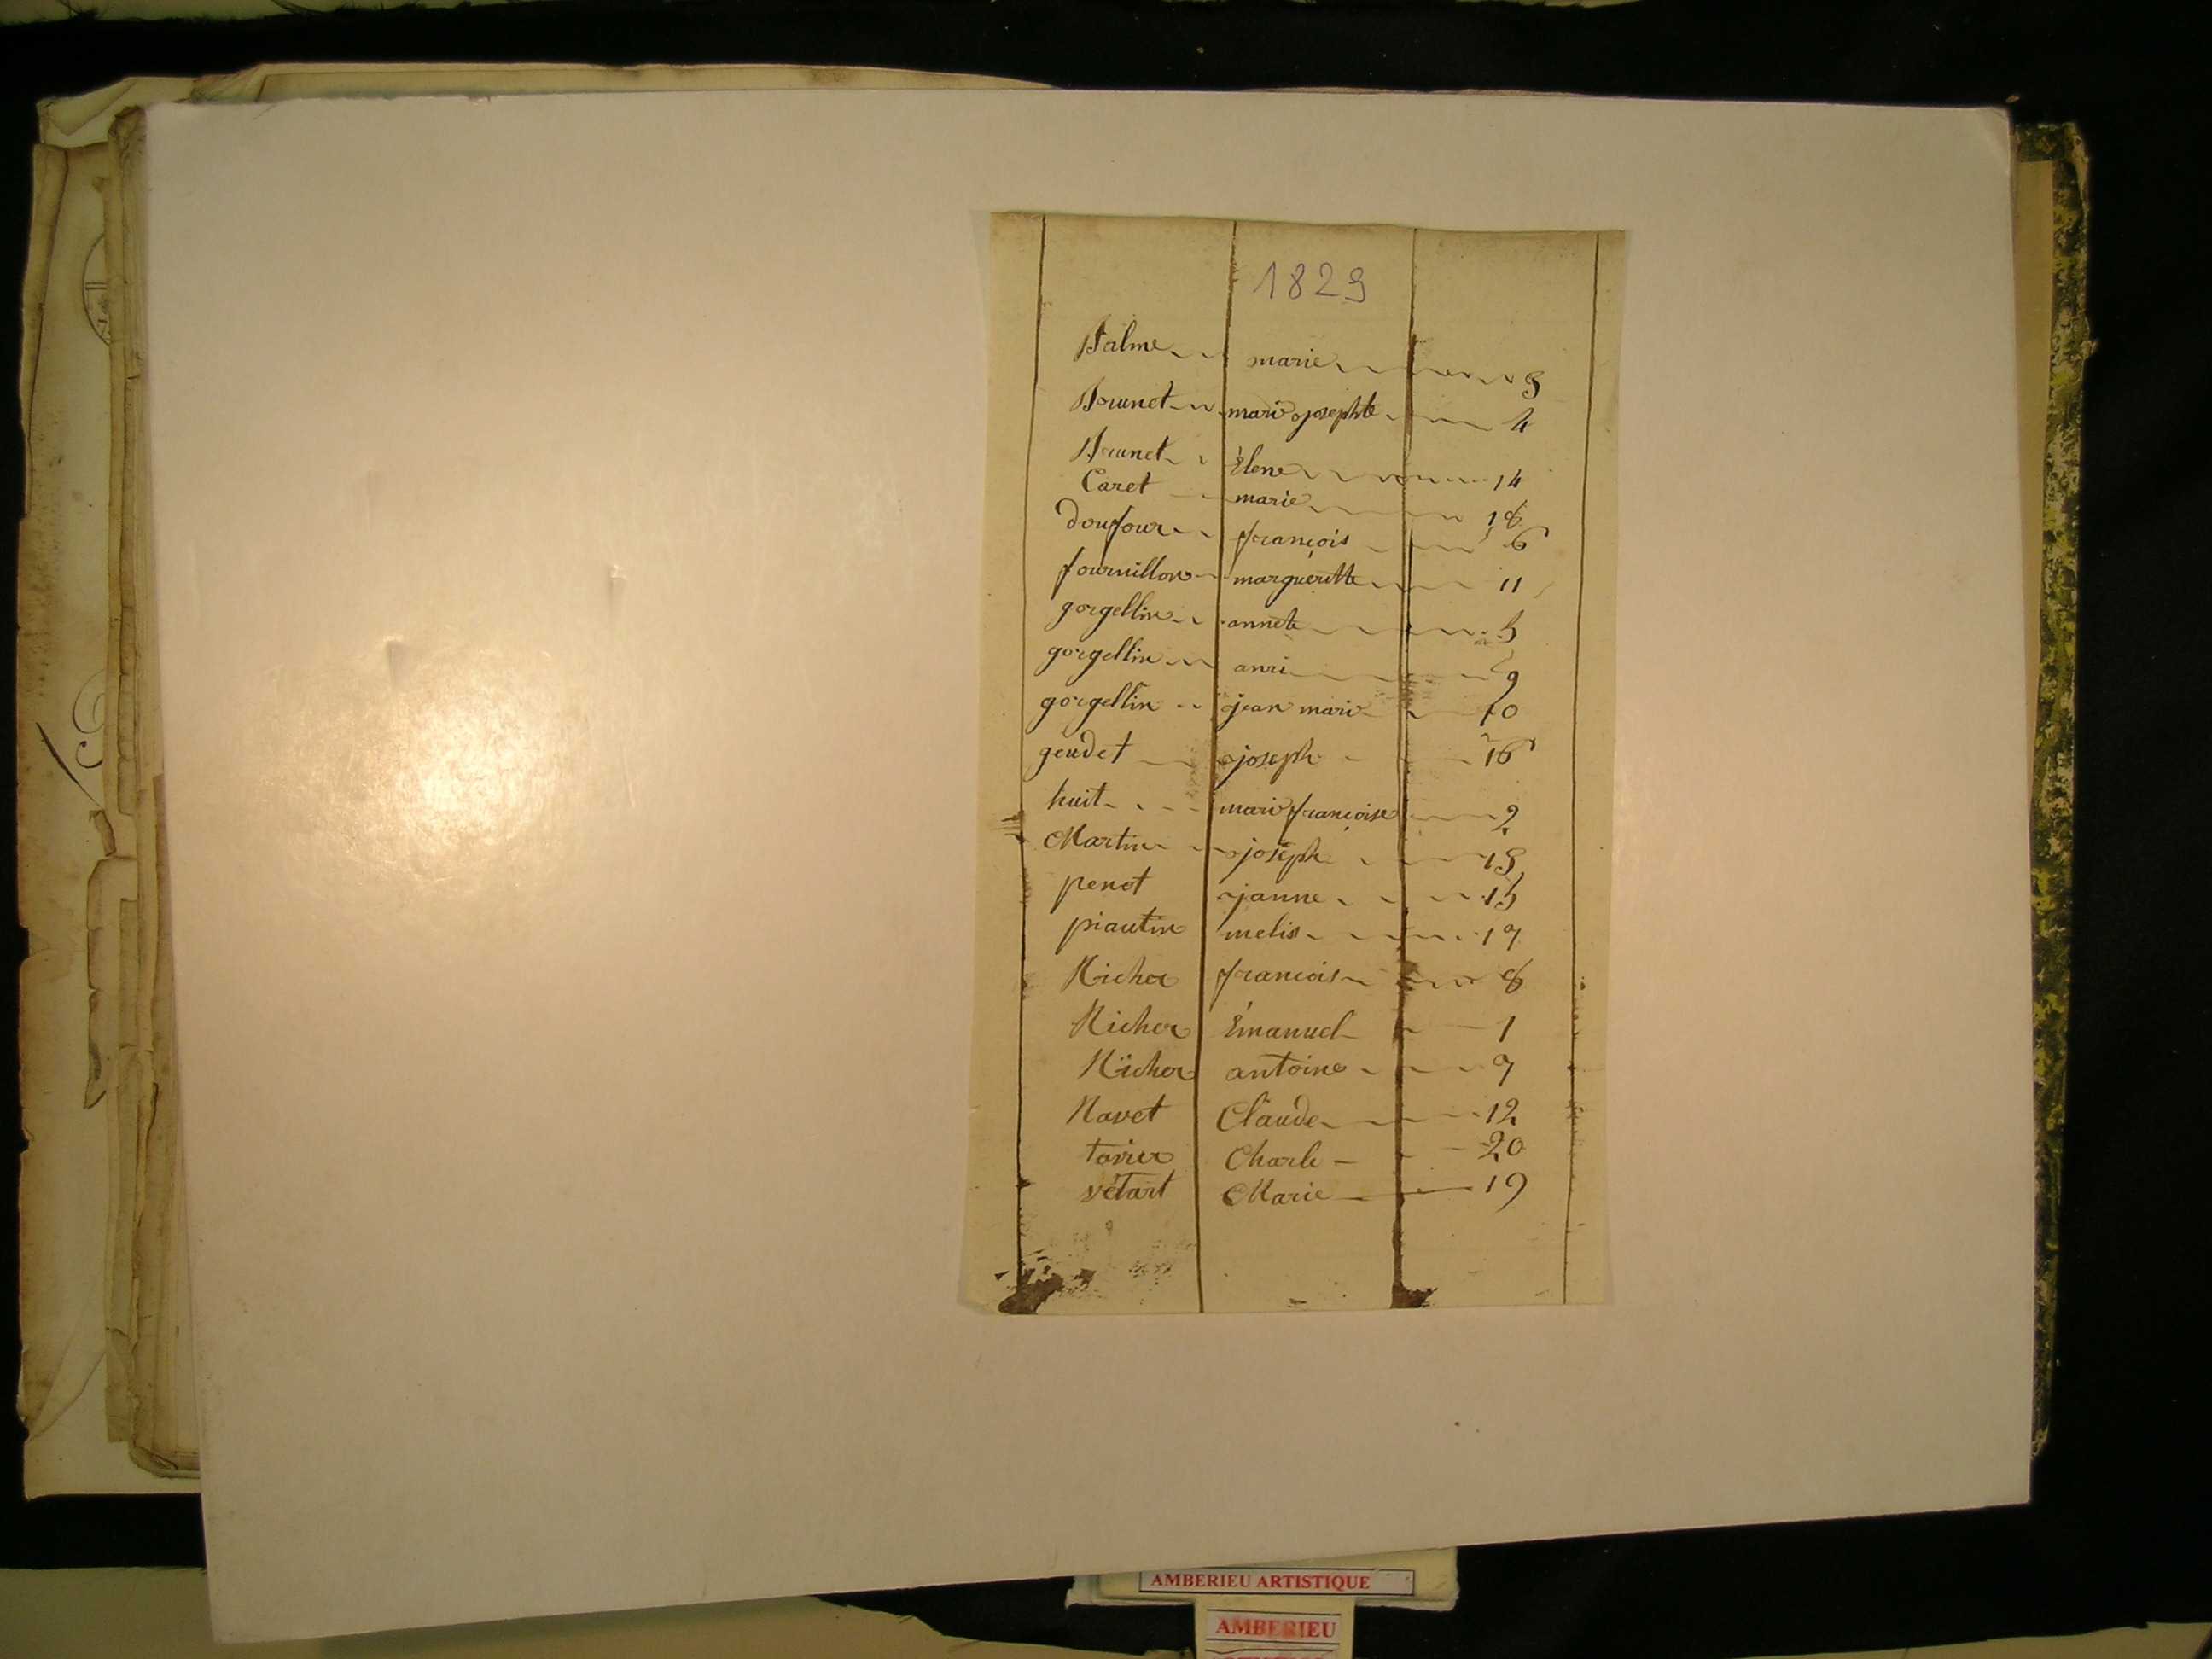 1829
Balme marie 3
Brunet marie josephte 4
Brunet Élene 14
Caret marie 18
doufour françois 6
fournillon margueritte 11
gorgellin annete 5
gorgellin anri 9
gorgellin jean marie 10
geudet joseph 16
huit marie françoise 2
Martin joseph 13
penot janne 15
piautin melis 19
Richer francois 8
Richer Émanuel 1
Richer antoine 9
Navet Claude 12
tavier Charle 20
vétart Marie 19
AMBERIEU ARTISTIQUE
AMBERIEU